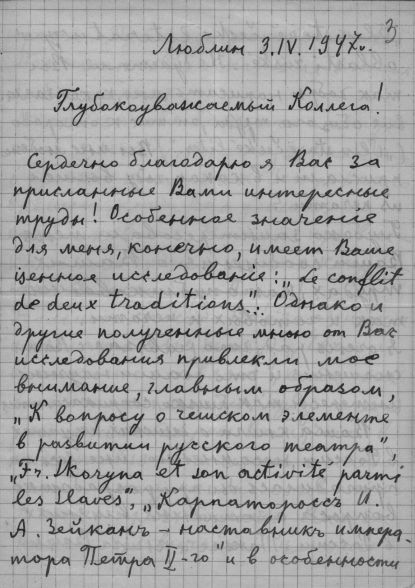 3
Люблин 3.IV.1947 г.
Глубокоуважаемый Коллега!
Сердечно благодарю я Вас за
присланные Вами интересные
труды! Особенное значеніе
для меня, конечно, имеет Ваше
ценное исследованіе: „Le conflit
de deux traditions". Однако и
другие полученные мною от Вас
исследования привлекли мое
внимание, главным образом,
„К вопросу о чешском элементе
в развитии русского театра",
„Fr. Skoryna et son activité parmi
les slaves", „Карпатороссъ И
А. Зейканъ – наставникъ импера-
тора Петра II-го" и в особенности